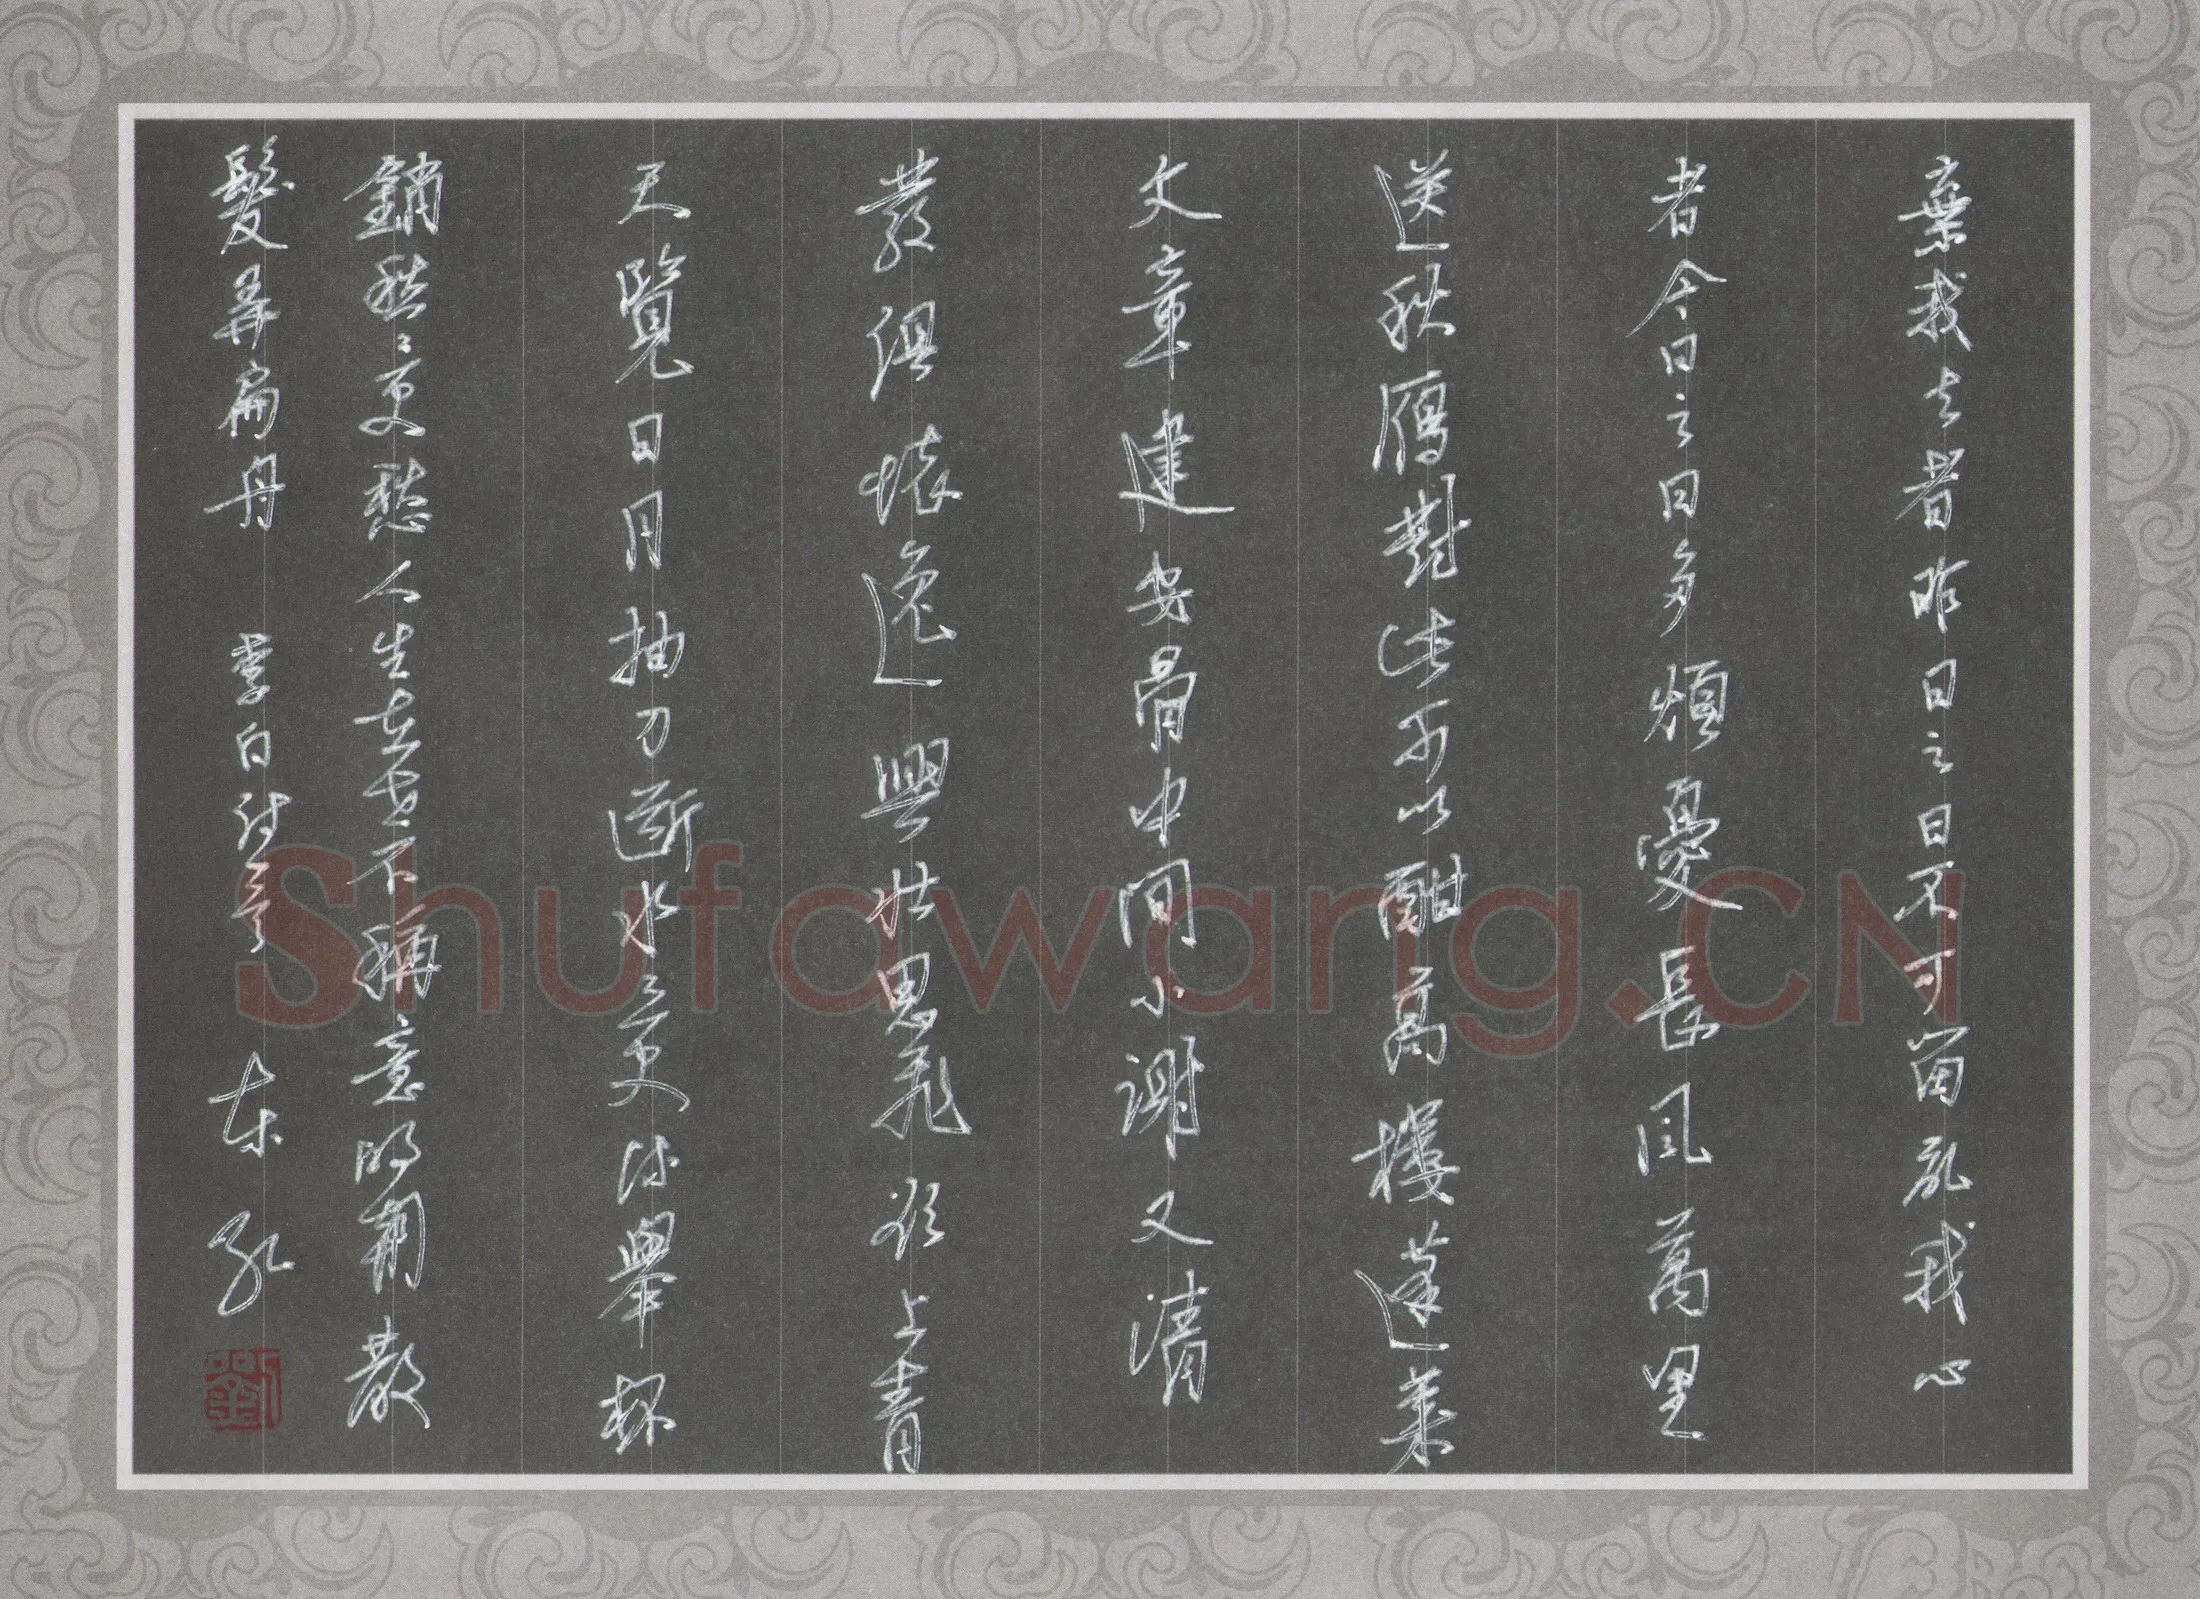 棄我去者昨日之日不可留亂我心
者今日之日多煩憂長風萬里
送秋鴈對此可以酣高樓蓬萊
文章建安骨中間小謝又清
發俱懷逸興壯思飛欲上青
天覽日月抽刀斷水〻更流舉杯
銷愁〻更愁人生在世不稱意明朝散
髮弄扁舟 李白詩
劉
Shufawang.CN